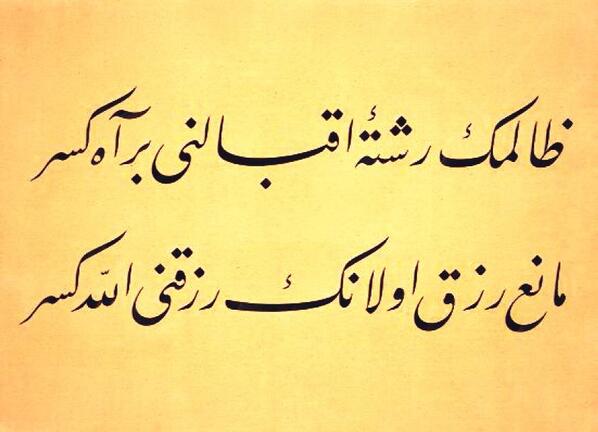 ظالمك رشتۀ اقبالنی بر آه كسر
مانع رزق اولانك رزقنی الله كسر